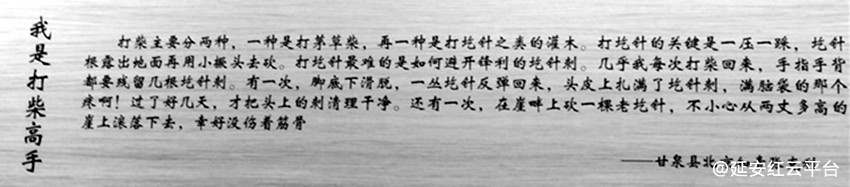 我是打柴高手
打柴主要分两种，一种是打茅草柴，再一种是打圪针之类的灌木。打圪针的关键是一压一踩，圪针
根露出地面再用小䦆头去砍。打圪针最难的是如何避开锋利的圪针刺。几乎我每次打柴回来，手指手背
都要残留几根圪针刺。有一次，脚底下滑脱，一丛圪针反弹回来，头皮上扎满了圪针刺，满脑袋的那个
疼啊！过了好几天，才把头上的刺清理干净。还有一次，在崖畔上砍一棵老圪针，不小心从两丈多高的
崖上滚落下去，幸好没伤着筋骨
——甘泉县北京知青
@延安红云平台